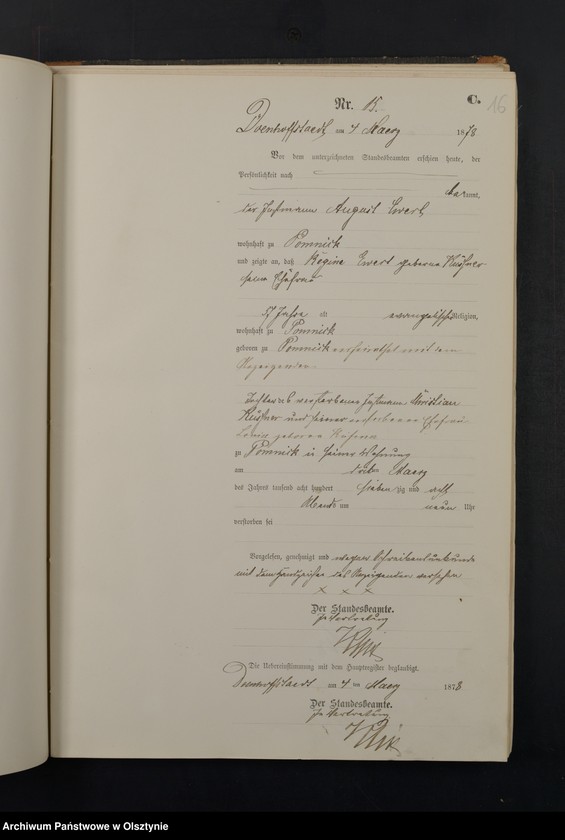 C. 16
Nr. 15.
Doenhoffstaedt am 4 Maerz 1878
Vor dem unterzeichneten Standesbeamten erschien heute, der
Persönlichkeit nach
kannt,
der Instmann August Ewert
wohnhaft zu Pomnick
und zeigte an, daß Regine Ewert geborene
seine Ehefrau
57 Jahre alt evangelischer Religion,
wohnhaft zu Pomnick
geboren zu Pomnick verheirathet mit dem
Anzeigenden
Tochter des verstorbenen Instmann Christian
und seiner verstorbenen Ehefrau
geborene
zu Pomnick in seiner Wohnung
am Maerz
des Jahrs tausend acht hundert siebenzig und acht
Abends um neun Uhr
verstorben sei
Vorgelesen, genehmigt und wegen Schreibensunkunde
mit dem Handzeichen des Anzeigenden versehen
× × ×
Der Standesbeamte.
In Vertretung
Die Uebereinstimmung mit dem Hauptregister beglaubigt.
Doenhoffstaedt am 4 ten Maerz 1878
Der Standesbeamte.
In Vertretung
Archiwum Państwowe w Olsztynie